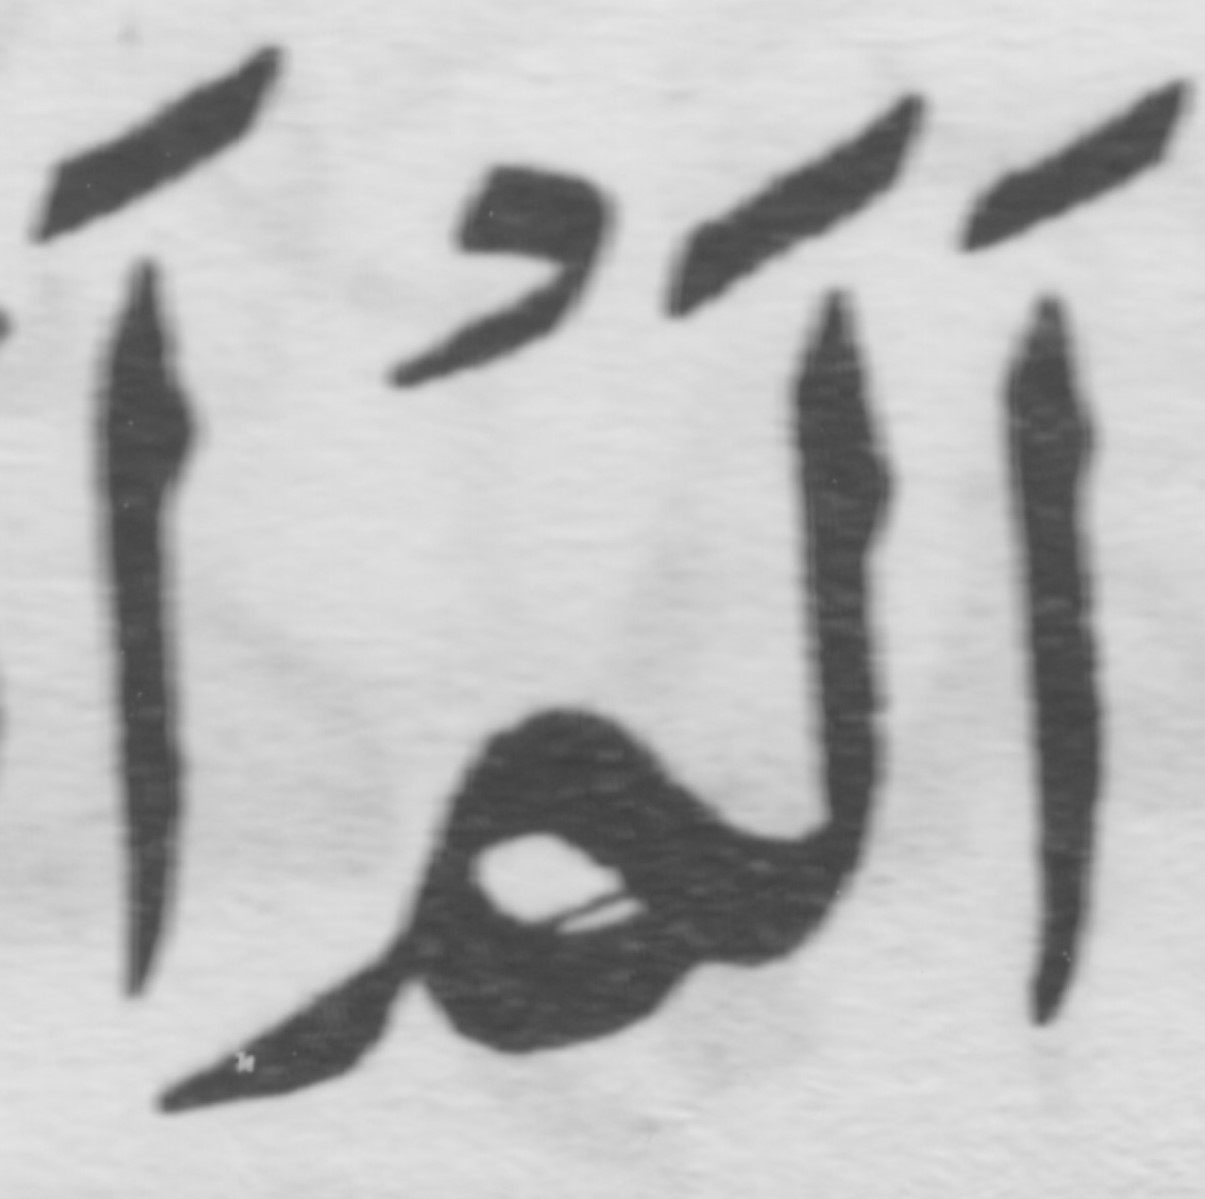 اَلَمْ اَ